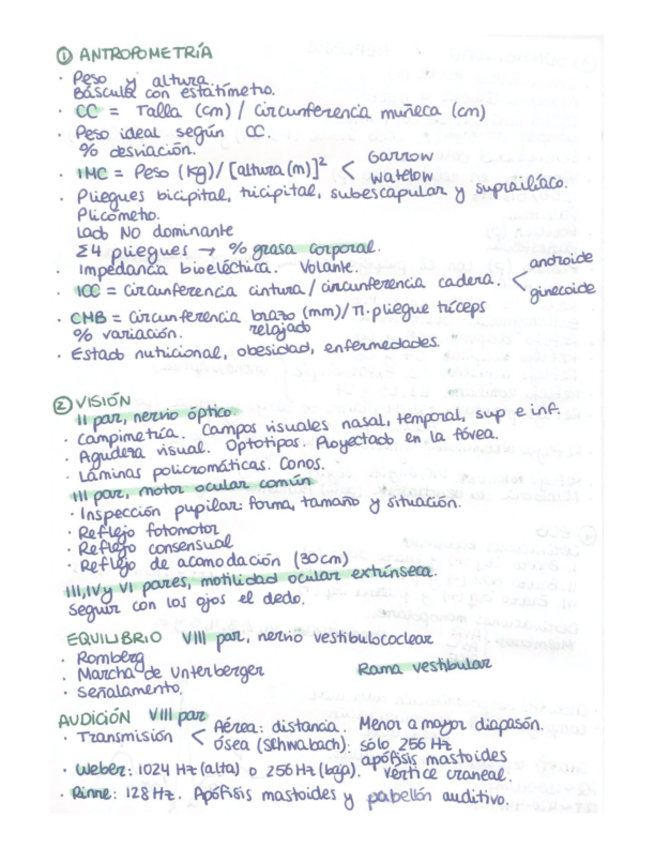 ① ANTROPOMETRÍA
· Peso y altura.
Báscula con estatímetro.
· CC = Talla (cm) / circunferencia muñeca (cm)
· Peso ideal según CC.
% desviación.
· IMC = Peso (kg)/[altura(m)]² < Garrow
Watelow
· Pliegues bicipital, tricipital, subescapular y suprailíaco.
Plicómetro.
Lado NO dominante
Σ4 pliegues → % grasa corporal.
· Impedancia bioeléctrica. Volante.
· ICC = circunferencia cintura / circunferencia cadera. < androide
ginecoide
· CMB = circunferencia brazo (mm)/π·pliegue tríceps
relajado
% variación.
· Estado nutricional, obesidad, enfermedades.
② VISIÓN
II par, nervio óptico.
· Campimetría. Campos visuales nasal, temporal, sup e inf.
· Agudeza visual. Optotipos. Proyectado en la fóvea.
· Láminas policromáticas. Conos.
III par, motor ocular común
· Inspección pupilar: forma, tamaño y situación.
· Reflejo fotomotor
· Reflejo consensual
· Reflejo de acomodación (30cm)
III, IV y VI pares, motilidad ocular extrínseca.
Seguir con los ojos el dedo.
EQUILIBRIO VIII par, nervio vestibulococlear
· Romberg
· Marcha de Unterberger Rama vestibular
· Señalamento.
AUDICIÓN VIII par
· Transmisión < Aérea: distancia. Menor a mayor diapasón.
Ósea (Schwabach): sólo 256 Hz
apófisis mastoides
· Weber: 1024 Hz (alta) o 256 Hz (baja). vértice craneal.
· Rinne: 128 Hz. Apófisis mastoides y pabellón auditivo.